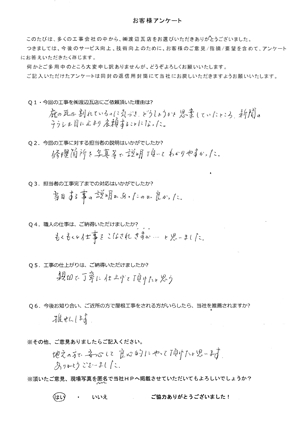 お客様アンケート
このたびは、多くの工事会社の中から、㈱渡辺瓦店をお選びいただきありがとうございました。
つきましては、今後のサービス向上と、技術向上のために、お客様のご意見/指摘/要望を含めて、アンケート
にお答えいただきたく存じます。
何かとご多用中のところ大変申し訳ありませんが、どうぞよろしくお願いいたします。
ご記入いただけたアンケートは同封の返信用封筒にて当社にお戻しいただきますようお願いいたします。
Q1.今回の工事を㈱渡辺瓦店にご依頼頂いた理由は?
庭の瓦が割れているのに気づき、どうしようかと思案していたところ、新聞の
チラシを目にしたより依頼することになった。
Q2.今回の工事に対する担当者の説明はいかがでしたか?
修理箇所を写真等で説明頂いてわかりやすかった。
Q3.担当者の工事完了までの対応はいかがでしたか?
当日も事の説明があったので良かった。
Q4.職人の仕事は、ご納得いただけましたか?
もくもくと仕事をこなされ…と思いました。
Q5.工事の仕上がりは、ご納得いただけましたか?
親切丁寧に仕上げて頂けたと思う
Q6.今後お知り合い、ご近所の方で屋根工事をされる方がいらしたら、当社を推薦されますか?
推せんします
※その他、ご意見ありましたらご記入ください。
地元の方で安心して良心的にやって頂けたと思います。
ありがとうございました。
※頂いたご意見、現場写真を匿名で当社HPへ掲載させていただいてもよろしいでしょうか?
はい ・ いいえ ご協力ありがとうございました!